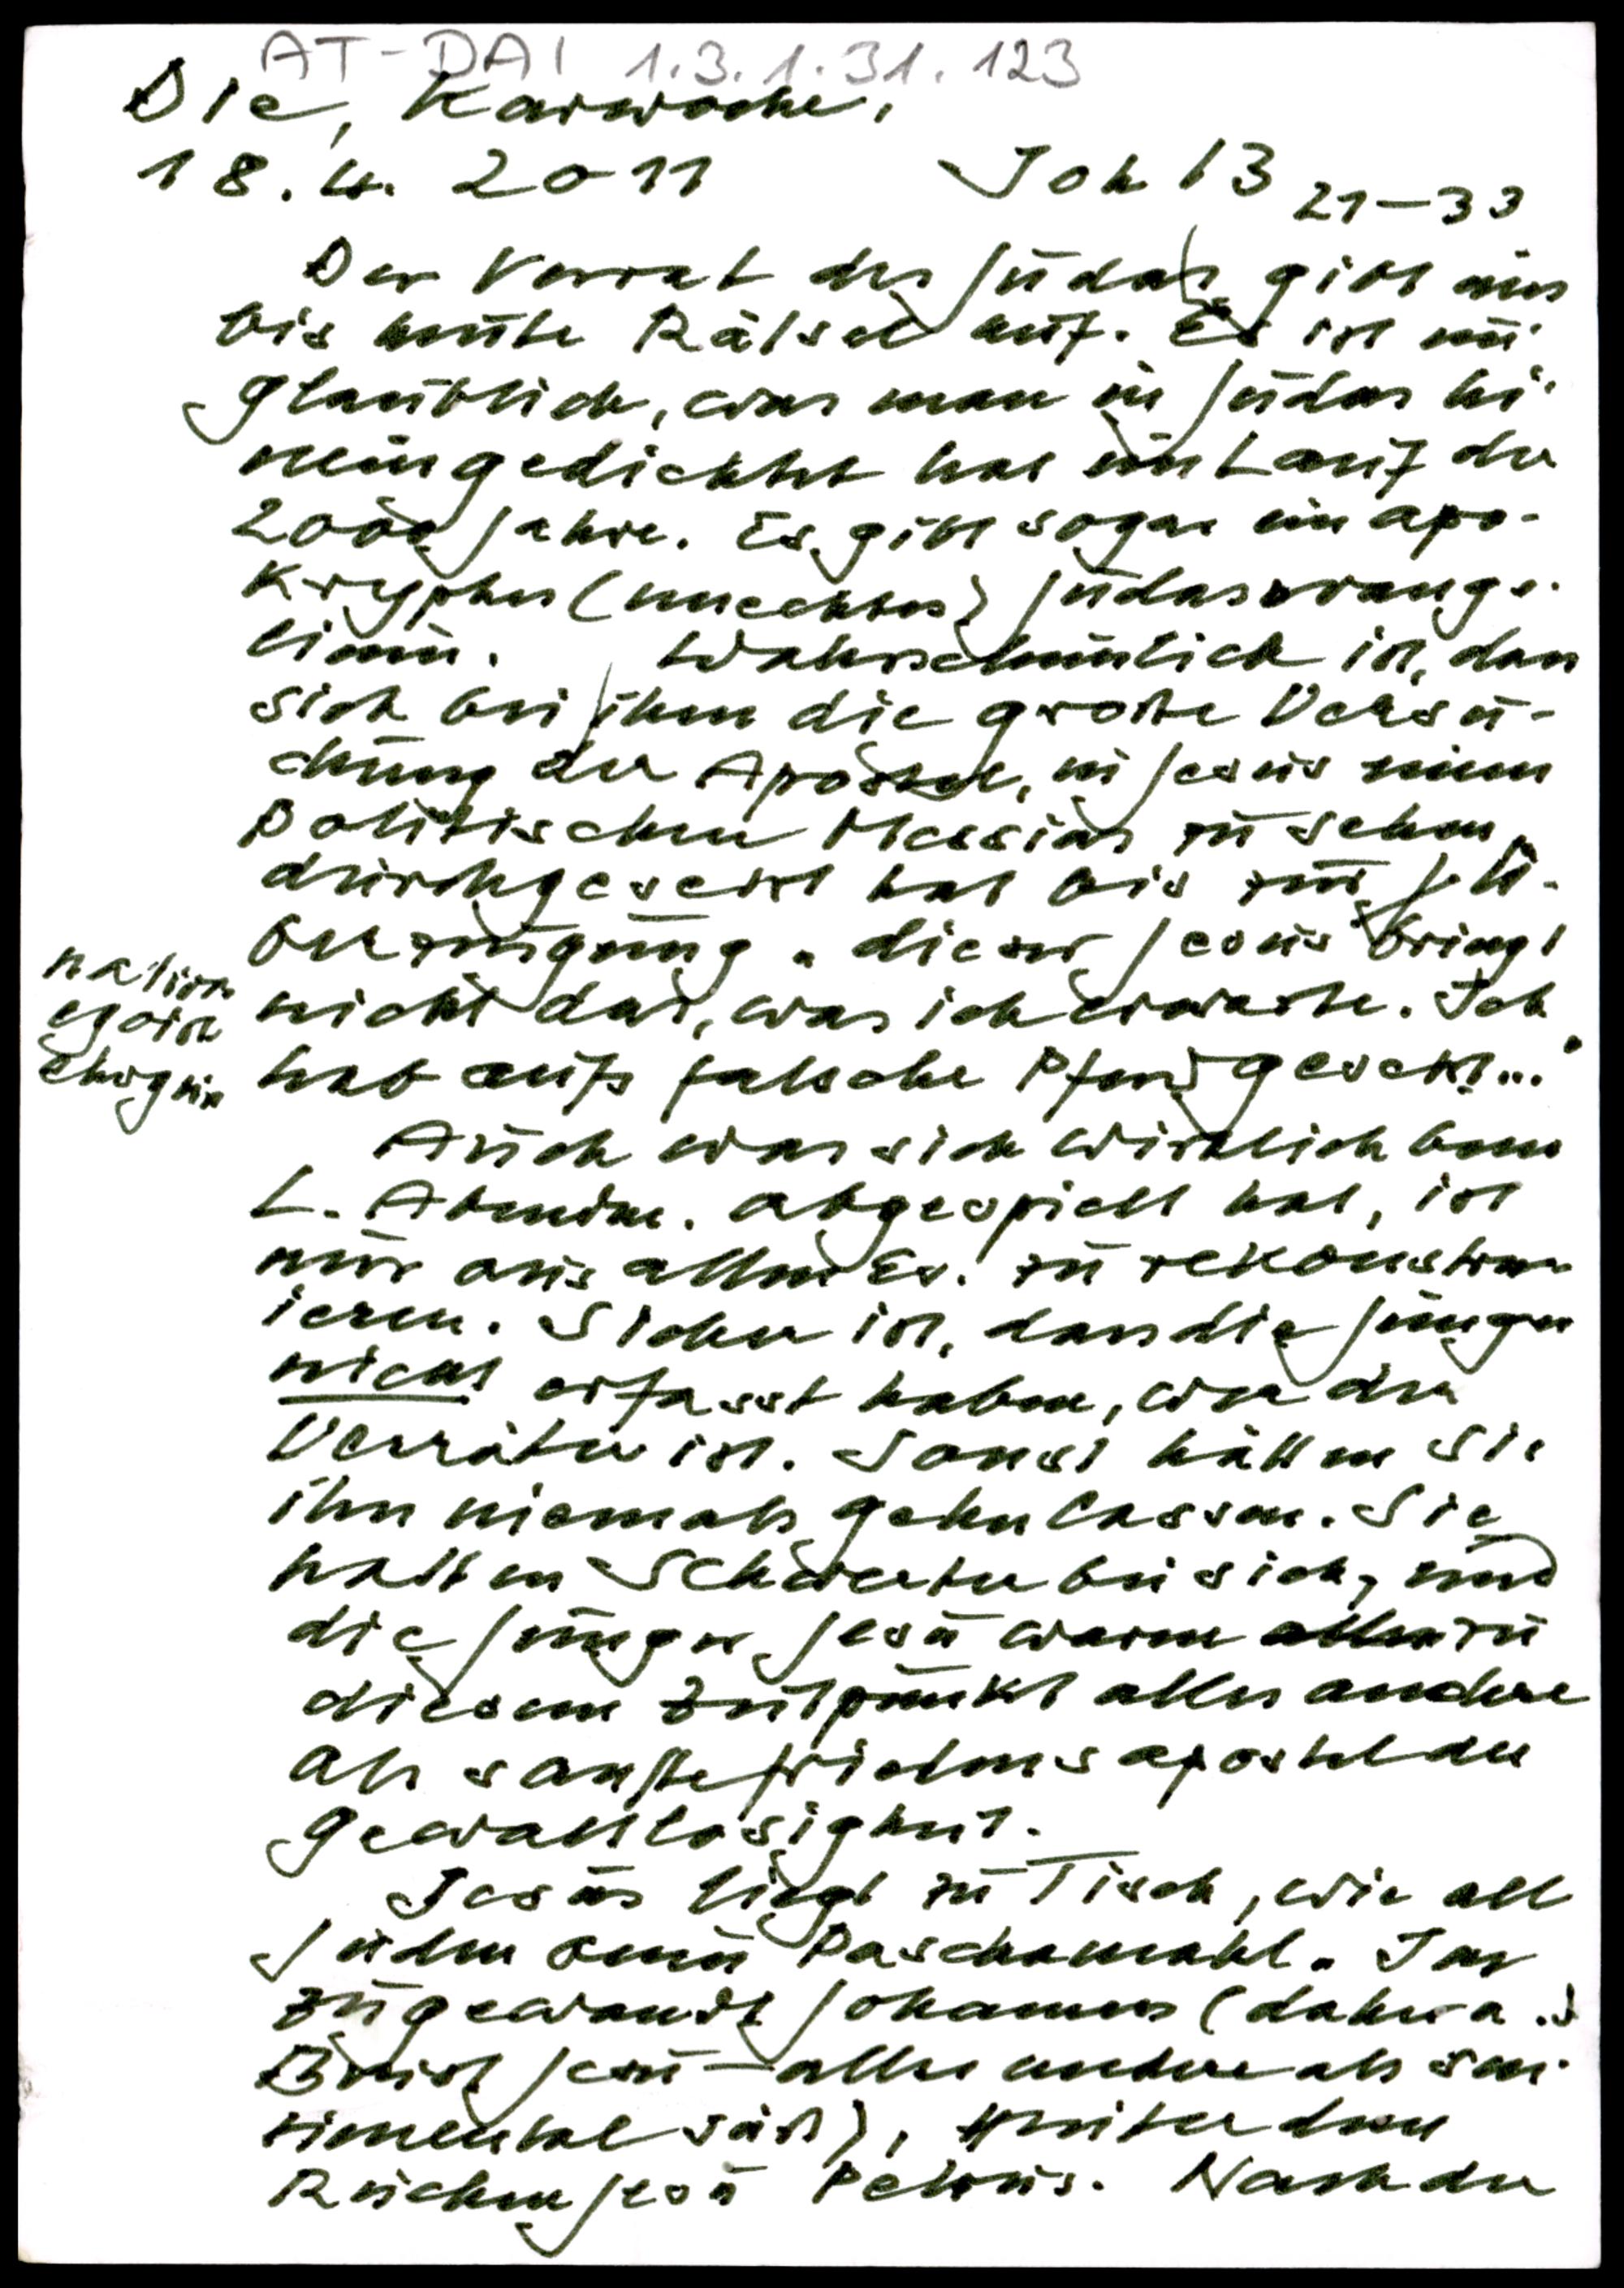 AT-DAI 1.3.1.31.123
Die, Karwoche,
18.4.2011 Joh 13 21-33
Der Verrat des Judas gibt uns
bis heute Rätsel auf. Es ist un-
glaublich, was man in Judas hi-
neingedichtet hat im Lauf der
2000 Jahre. Es gibt sogar ein apo-
kryphes (unechtes) Judasevange-
lium. Wahrscheinlich ist, dass
sich bei ihm die große Versu-
chung der Apostel, in Jesus einen
politischen Messias zu sehen,
durchgesetzt hat bis zur Ü-
berzeugung "dieser Jesus bringt
nicht das, was ich erwarte. Ich
hab aufs falsche Pferd gesetzt..."
nation
egoist
ehrgeiz
Auch was sich wirklich beim
L. Abendm. abgespielt hat, ist
nur aus allen Ev. zu rekonstru-
ieren. Sicher ist, dass die Jünger
nicht erfasst haben, wer der
Verräter ist. Sonst hätten sie
ihn niemals gehen lassen. Sie
hatten Schwerter bei sich, und
die Jünger Jesu waren zu
diesem Zeitpunkt alles andere
als sanfte Friedensapostel der
Gewaltlosigkeit.
Jesus liegt zu Tisch, wie alle
Juden beim Paschamahl. Ihm
zugewandt Johannes (daher a.d
Brust Jesu - alles andere als sen-
timental süß), hinter dem
Rücken Jesu Petrus. Nach der